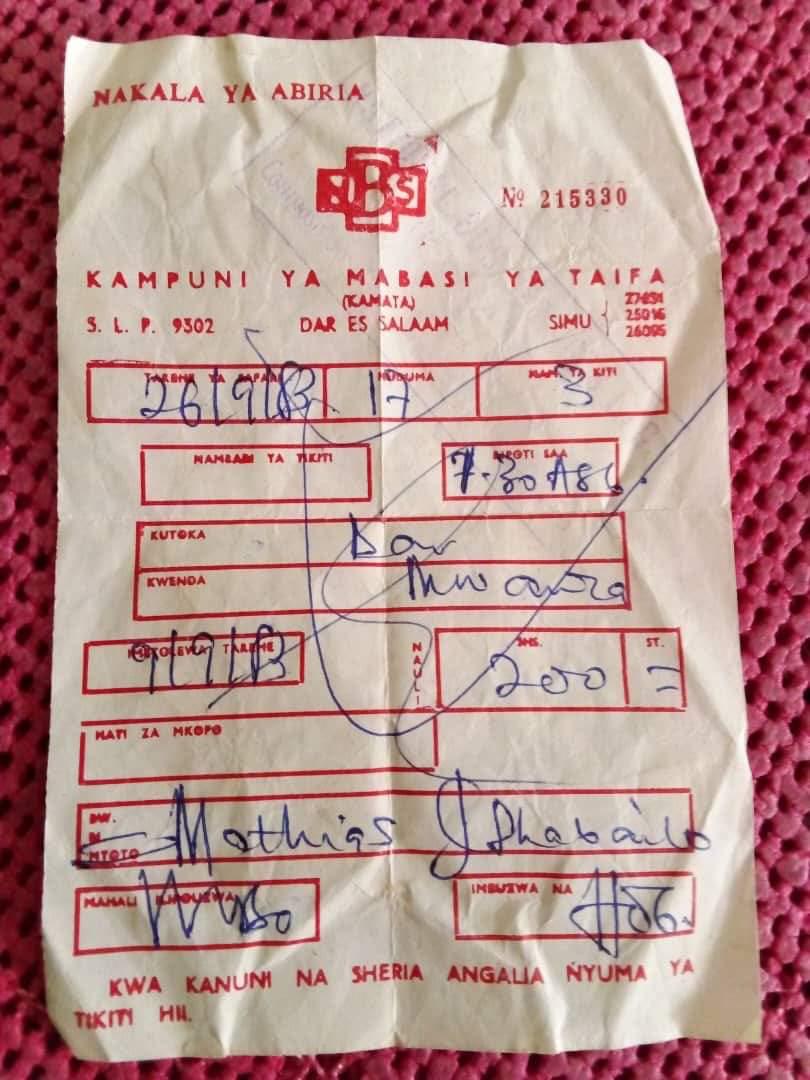 NAKALA YA ABIRIA
NBS
Nº 215330
KAMPUNI YA MABASI YA TAIFA
(KAMATA)
S. L. P. 9302 DAR ES SALAAM SIMU
25016
TAREHE YA SAFARI HUDUMA NAM. YA KITI
17 3
NAMBARI YA TIKITI RIPOTI SAA
7.30 ASB.
KUTOKA Dar
KWENDA Mwanza
IMETOLEWA TAREHE NAULI SHS. ST.
200 =
HATI ZA MKOPO
BW.
BI
MTOTO
Mathias J
MAHALI ILIPOUZWA IMEUZWA NA
KWA KANUNI NA SHERIA ANGALIA NYUMA YA
TIKITI HII.